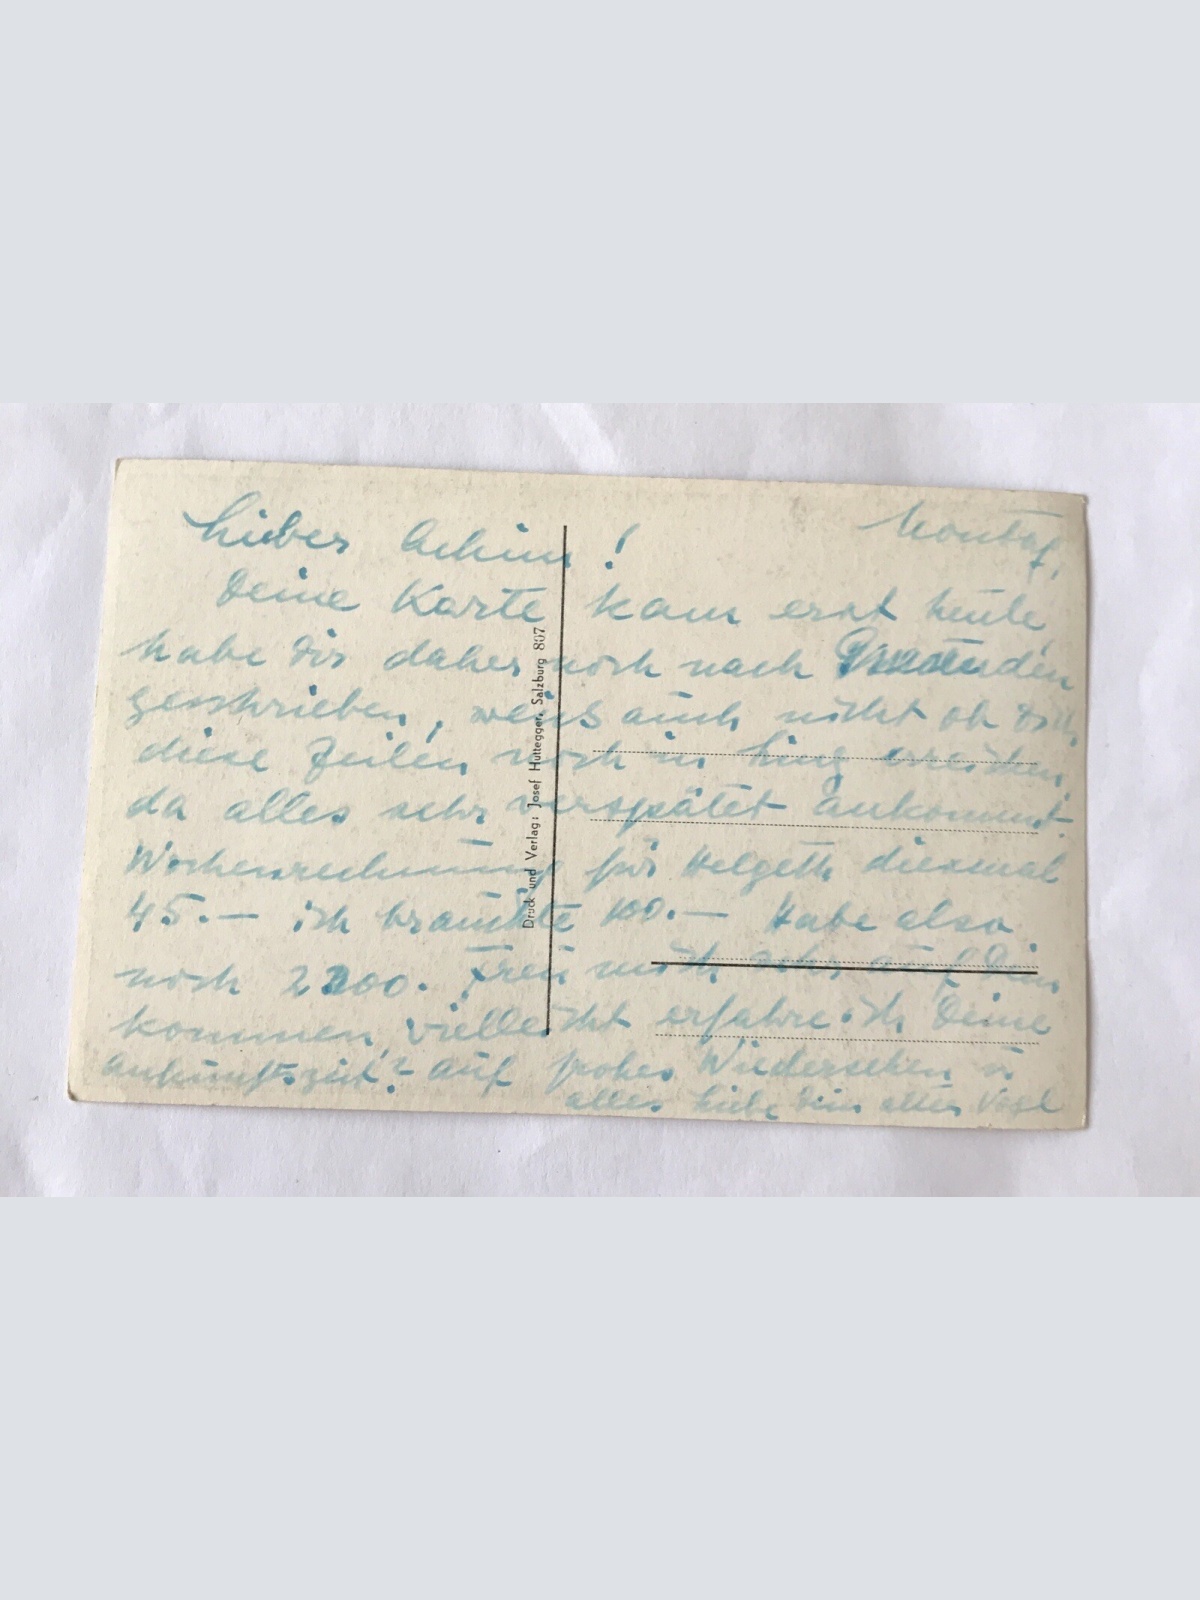 Montag,
Lieber Achim!
Deine Karte kam erst heute
habe Dir daher noch nach Gmunden
geschrieben, weiß auch nicht ob Dich
diese Zeilen noch in Linz erreichen,
da alles sehr verspätet ankommt.
Wochenrechnung für diesmal
45.— ich brauchte 100.— Habe also
noch 2300. Freu mich sehr auf Dein
kommen, vielleicht erfahre ich Deine
Ankunftszeit? auf frohes Wiedersehen u
alles Liebe Dein alter
Druck und Verlag: Josef Huttegger, Salzburg 807